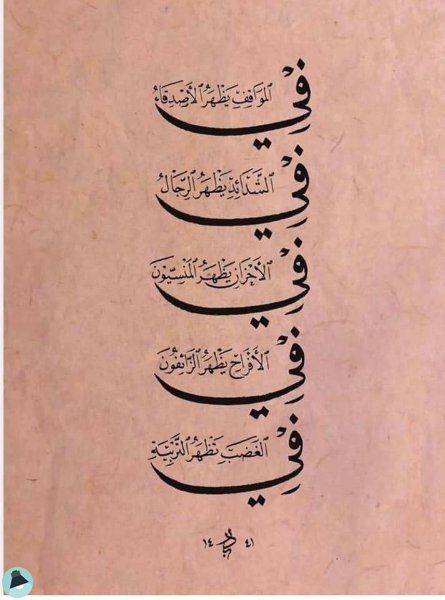 في المَوَاقِفِ يَظْهَرُ الأَصْدِقَاءُ
في الشَّدَائِدِ يَظْهَرُ الرِّجَالُ
في الأَحْزَانِ يَظْهَرُ المَنْسِيُّونَ
في الأَفْرَاحِ يَظْهَرُ الزَّائِفُونَ
في الغَضَبِ تَظْهَرُ التَّرْبِيَةُ
١٤ ٤١